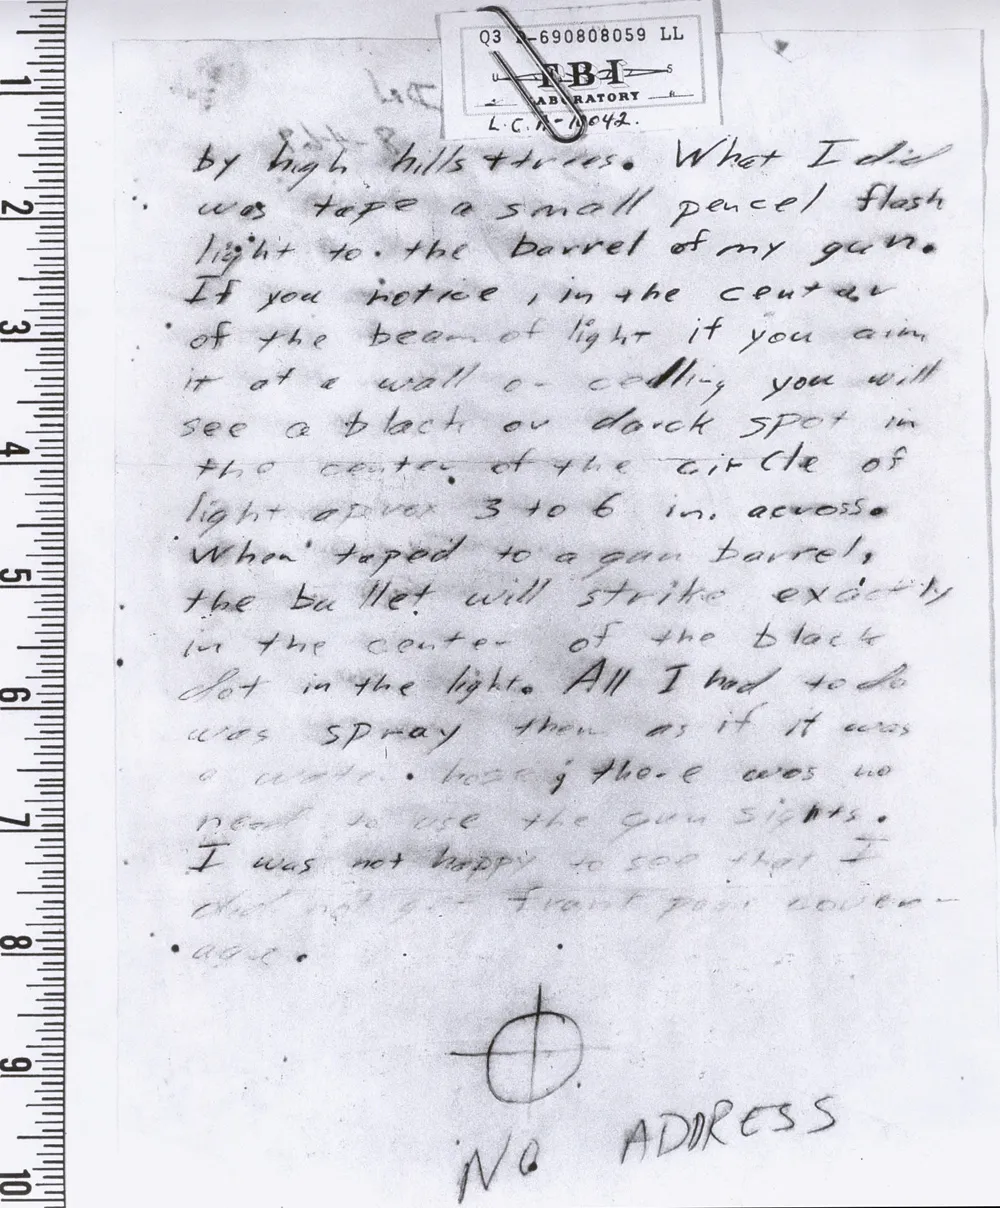 Q3 D-690808059 LL
U S
FBI
LABORATORY
L.C.A-10042.
by high hills + trees. What I did
was tape a small pencel flash
light to the barrel of my gun.
If you notice, in the center
of the beam of light if you aim
it at a wall or celling you will
see a black or darck spot in
the center of the circle of
light aprox 3 to 6 in. across.
When taped to a gun barrel,
the bullet will strike exactly
in the center of the black
dot in the light. All I had to do
was spray them as if it was
a water hose; there was no
need to use the gun sights.
I was not happy to see that I
did not get front page cover-
age.
NO ADDRESS
1
2
3
4
5
6
7
8
9
10